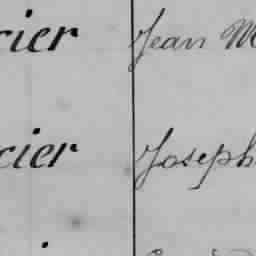 cier Jean M
cier Joseph